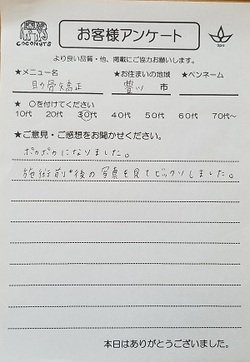 COCONUTS
お客様アンケート
より良い品質・他、掲載にご協力お願いします。
★メニュー名 ★お住まいの地域 ★ペンネーム
骨矯正 豊川 市
★ 〇を付けてください
10代 20代 30代 40代 50代 60代 70代～
★ご意見・ご感想をお聞かせください。
ポカポカになりました。
施術前・後の写真を見てビックリしました。
本日はありがとうございました。